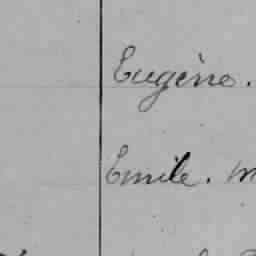 Eugène.
Emile. m